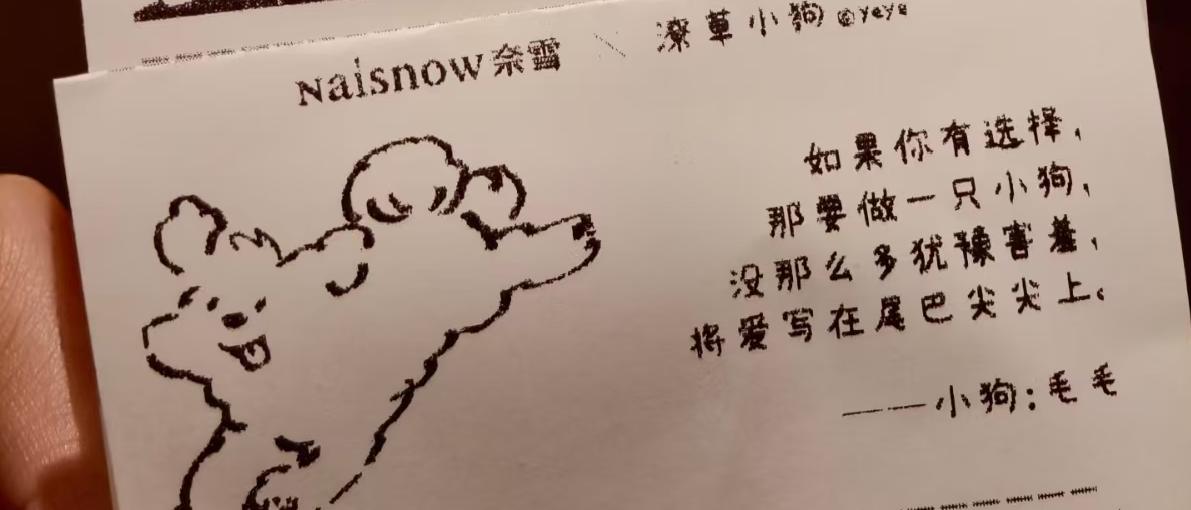 Naisnow奈雪 \ 潦草小狗 ©yeye
如果你有选择，
那要做一只小狗，
没那么多犹豫害羞，
将爱写在尾巴尖尖上。
——小狗：毛毛